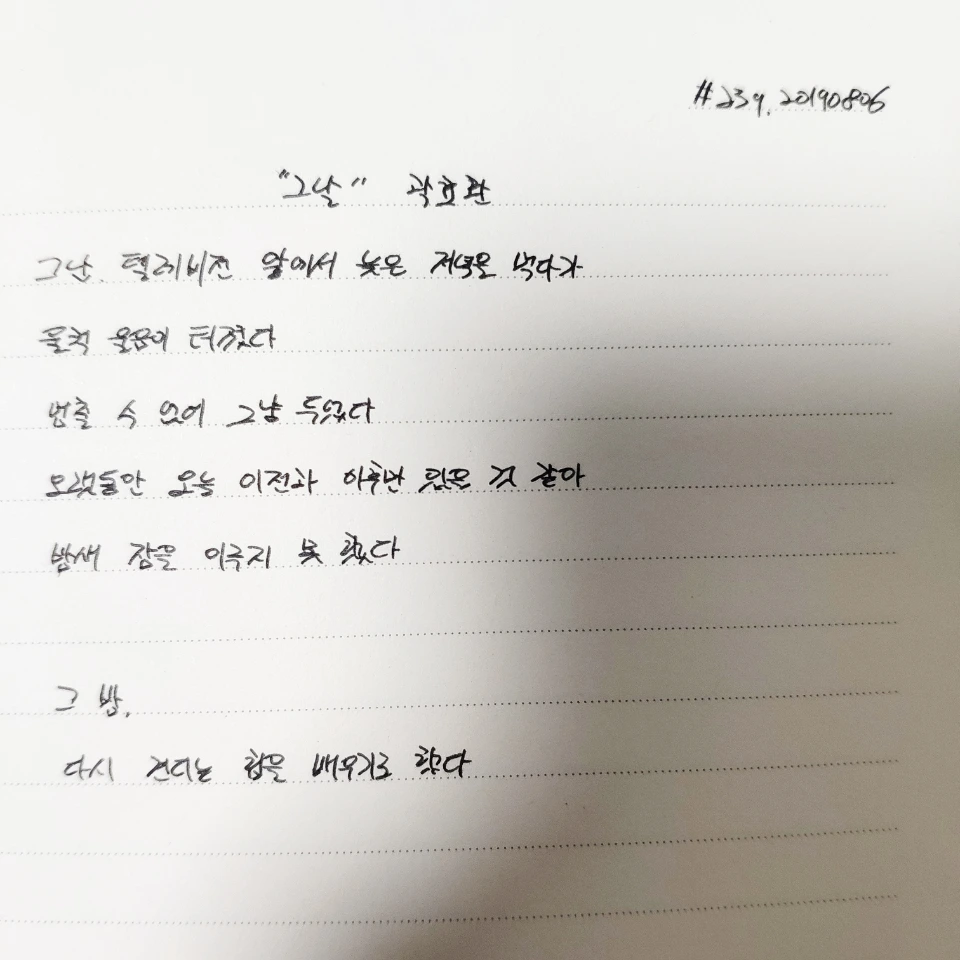 #239. 20190806
"그날" 곽효환
그날, 텔레비전 앞에서 늦은 저녁을 먹다가
울컥 울음이 터졌다
멈출 수 없어 그냥 두었다
오랫동안 오늘 이전과 이후만 있을 것 같아
밤새 잠을 이루지 못 했다
그 밤,
다시 견디는 힘을 배우기로 했다